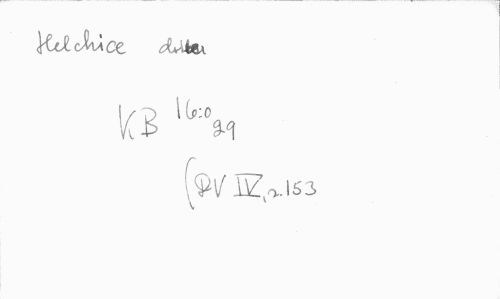 Helchice
KB 16:0 29
(RV IV, 2.153